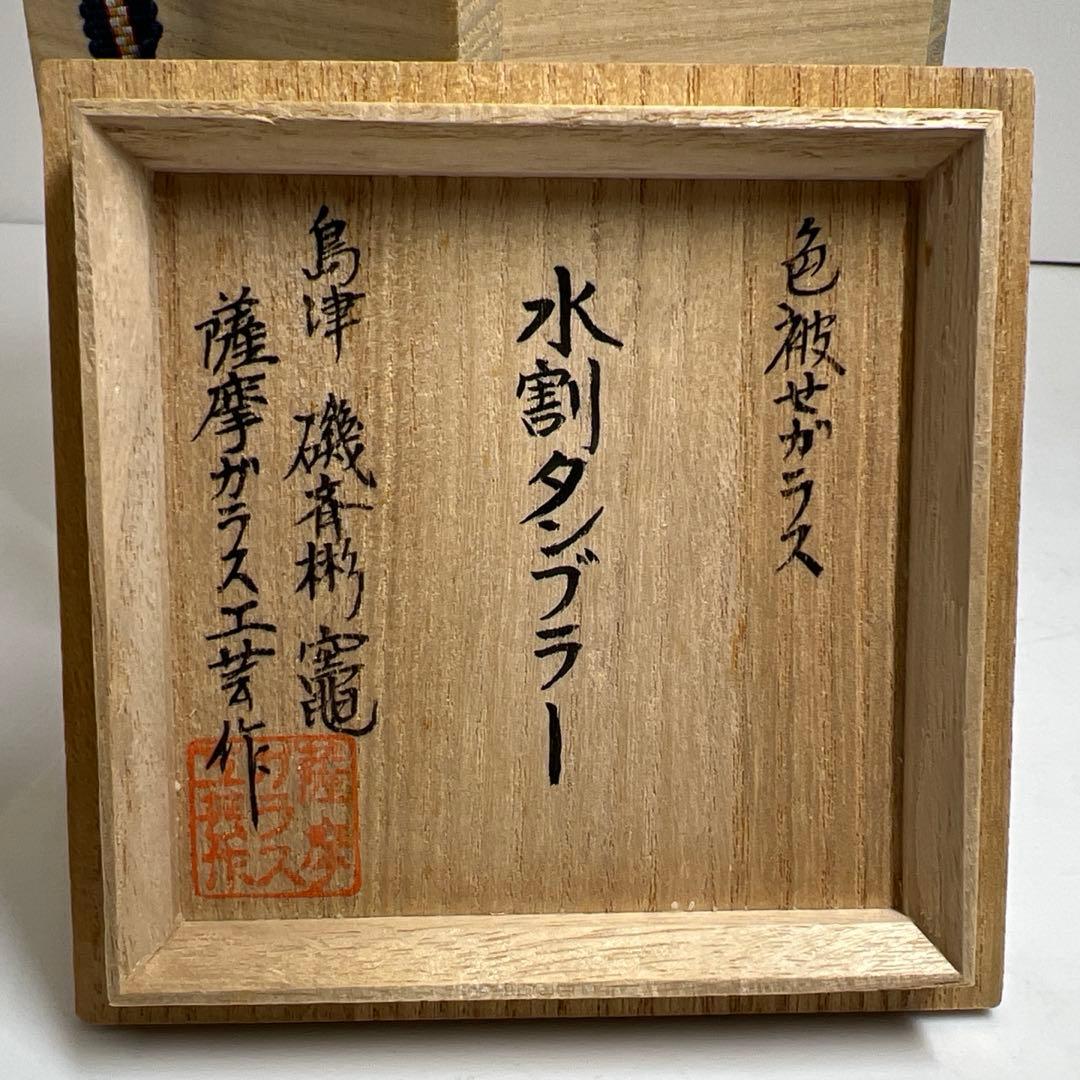 色被せガラス
水割タンブラー
島津 磯斉彬竈
薩摩ガラス工芸作
薩摩
ガラス
工芸作